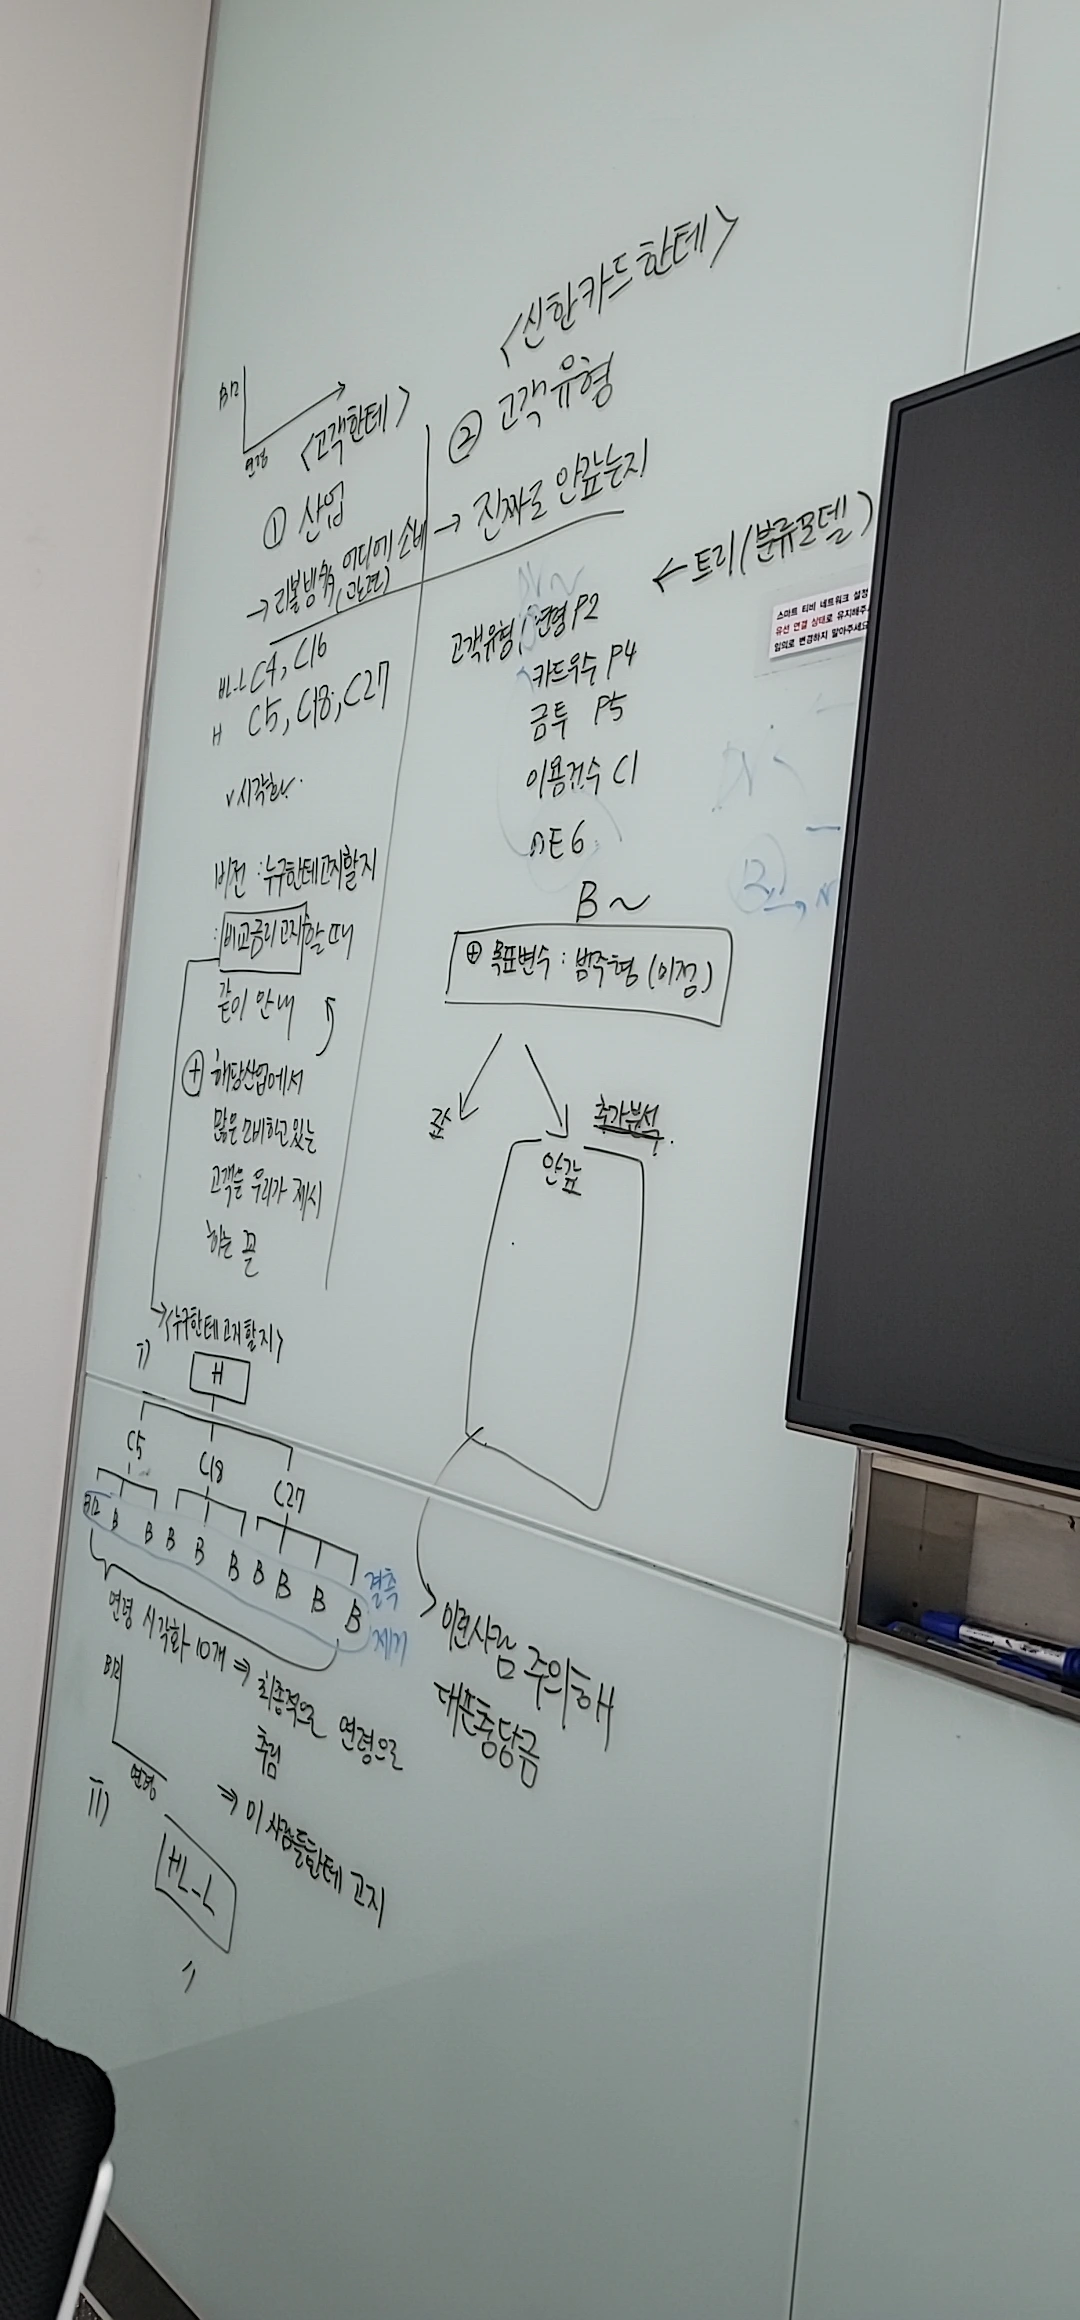 B12
연령
<고객한테>
① 산업
→ 리볼빙 어디에 소비
(관련)
HL-L C4, C16
H C5, C18, C27
v 시각화
비전 : 누구한테고지할지
: 비교금리고지할때
같이 안내
⊕ 해당산업에서
많은 소비하고있는
고객을 우리가 제시
하는 꼴
<신한카드한테>
② 고객유형
→ 진짜로 안갚는지
← 트리(분류모델)
고객유형 연령 P2
카드우수 P4
금투 P5
이용건수 C1
E6
B ~
⊕ 목표변수 : 범주형 (이정)
추가분석.
안갚
이런사람 주의해
대푼충당금
<누구한테고지할지>
I)
H
C5 C18 C27
B12 B B B B B B B B B
결측
제거
연령 시각화 10개 ⇒ 최종적으로 연령으로
추림
⇒ 이 사람들한테 고지
B12
연령
II)
HL-L
스마트 티비 네트워크 설정
유선 연결 상태로 유지해주
임의로 변경하지 말아주세요